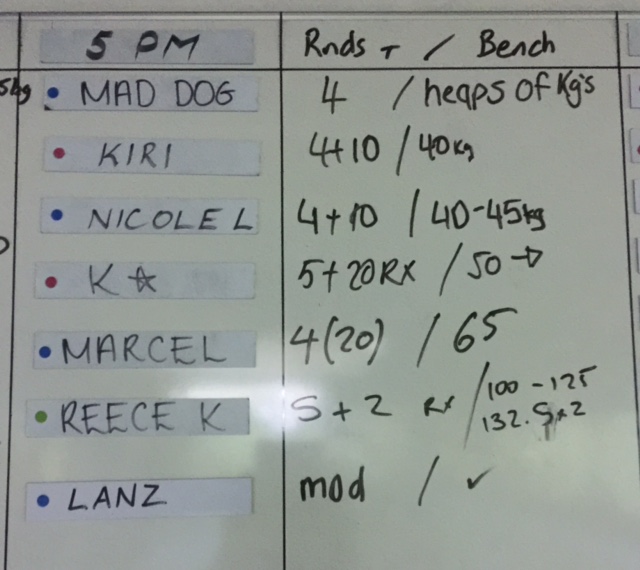 5 PM Rnds T / Bench
5kg • MAD DOG 4 / heaps of Kg's
• KIRI 4+10 / 40kg
• NICOLE L 4+10 / 40-45kg
• K☆ 5+20 RX / 50 →
• MARCEL 4(20) / 65
• REECE K 5+2 RX / 100 - 125
132.5x2
• LANZ mod / ✓